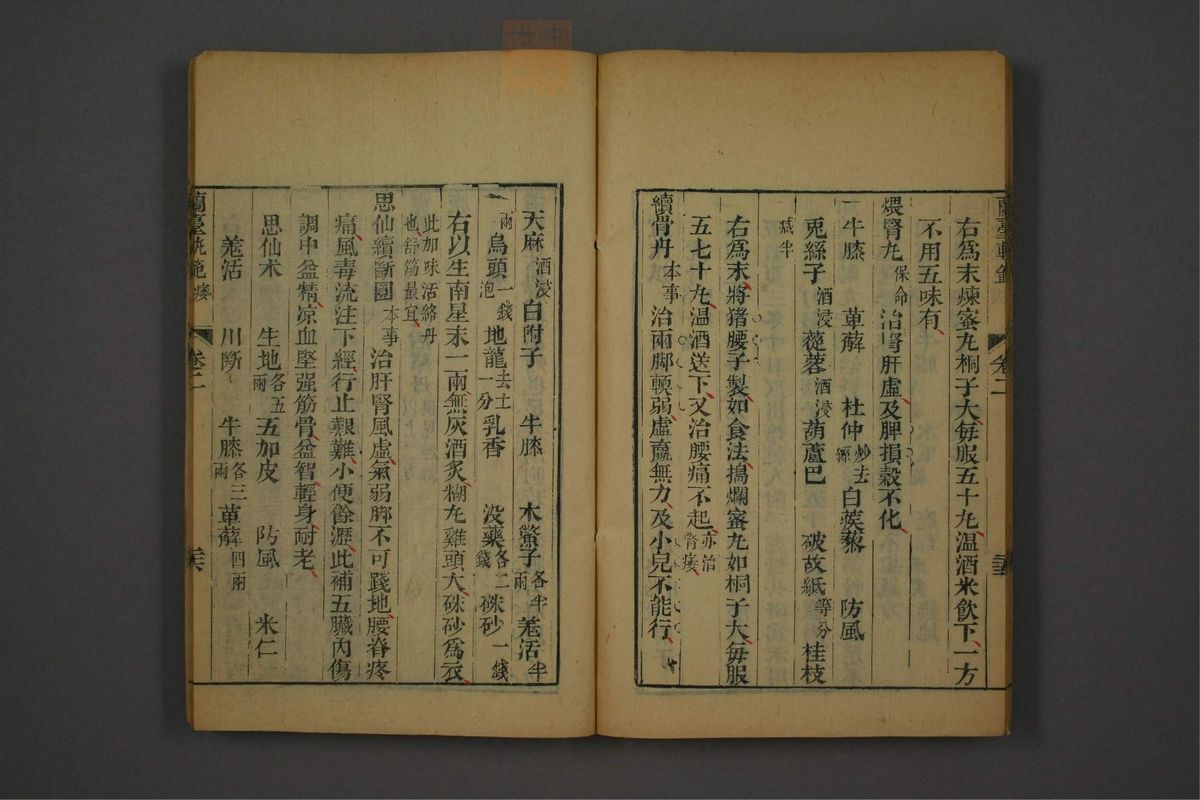 右爲末煉蜜丸桐子大每服五十丸温酒米飲下一方
不用五味有
煨腎丸保命治腎肝虛及脾損穀不化
牛膝 萆薢 杜仲炒去 白蒺藜 防風
兎絲子酒浸 蓯蓉酒浸 葫蘆巴 破故紙等分 桂枝
减半
右爲末將猪腰子製如食法搗爛蜜丸如桐子大每服
五七十丸温酒送下又治腰痛不起亦治腎痿
續骨丹本事治兩脚輭弱虛羸無力及小兒不能行
天麻酒浸 白附子 牛膝 木鱉子各半兩 羗活半
兩 烏頭一錢泡 地龍去土一分 乳香 没藥各二錢 硃砂一錢
右以生南星末一兩無灰酒炙糊丸雞頭大硃砂爲衣
此加味活絡丹
也舒筋最宜
思仙續斷圓本事治肝腎風虛氣弱脚不可踐地腰脊疼
痛風毒流注下經行止艱難小便餘瀝此補五臟內傷
調中益精凉血堅强筋骨益智輕身耐老
思仙术 生地各五兩 五加皮 防風 米仁
羗活 川斷 牛膝各三兩 萆薢四兩
蘭臺軌範 痿 卷二